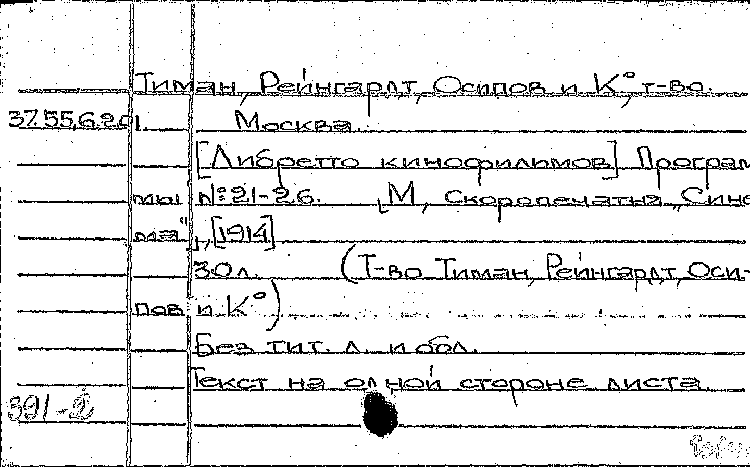 Тиман, Рейнгардт, Осипов и К°, т-во.
37.55.6.201. Москва.
[Либретто кинофильмов] Програм-
мы №21-26. [М, Скоропечатня „Сине-
ма“], [1914]
30 л. (Т-во Тиман, Рейнгардт, Оси-
пов и К°)
Без тит. л. и обл.
Текст на одной стороне листа.
391-2